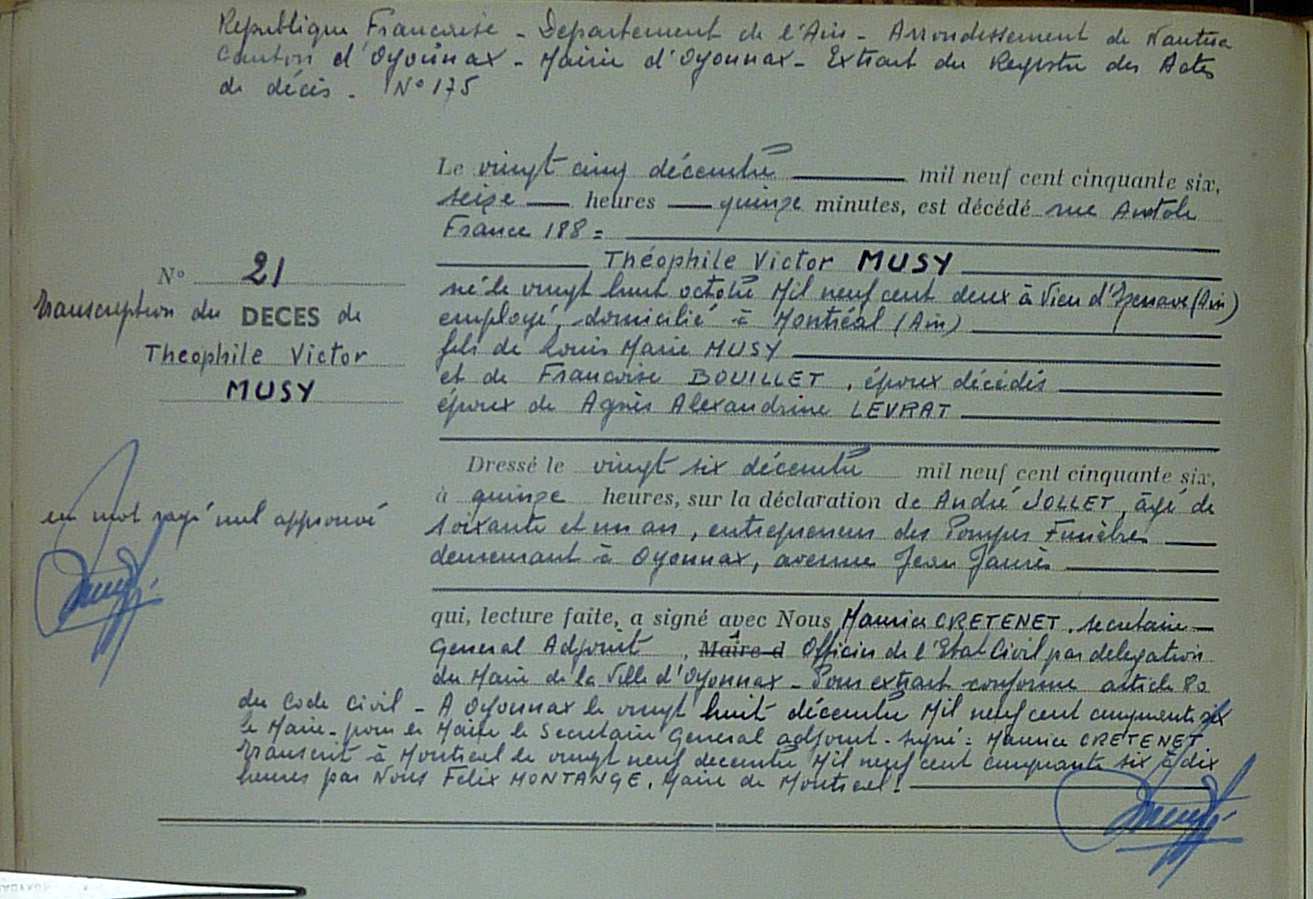 Republique Francaise - Departement de l'Ain - Arrondissement de Nantua
Canton d'Oyonnax - Mairie d'Oyonnax - Extrait du Registre des Actes
de décès - N° 175
Le vingt cinq décembre mil neuf cent cinquante six,
seize heures quinze minutes, est décédé rue Anatole
France 188 =
Théophile Victor MUSY
né le vingt huit octobre Mil neuf cent deux à Vieu d'Izenave (Ain)
employé, domicilié à Montréal (Ain)
fils de Louis Marie MUSY
et de Francoise BOUILLET, époux décédés
époux de Agnès Alexandrine LEVRAT
N° 21
transcription du DECES de
Theophile Victor
MUSY
Dressé le vingt six décembre mil neuf cent cinquante six,
à quinze heures, sur la déclaration de André JOLLET, âgé de
soixante et un an, entrepreneur des Pompes Funèbres
demeurant à Oyonnax, avenue Jean Jaurès
un mot rayé nul approuvé
qui, lecture faite, a signé avec Nous Maurice CRETENET, secretaire
General Adjoint, Maire d Officier de l'Etat Civil par delegation
du Maire de la Ville d'Oyonnax - Pour extrait conforme article 80
du Code Civil - A Oyonnax le vingt huit décembre Mil neuf cent cinquante six
le Maire - pour le Maire le Secretaire General adjoint - signé : Maurice CRETENET.
Transcrit à Montréal le vingt neuf decembre Mil neuf cent cinquante six à dix
heures par Nous Félix MONTANGE, Maire de Montréal.